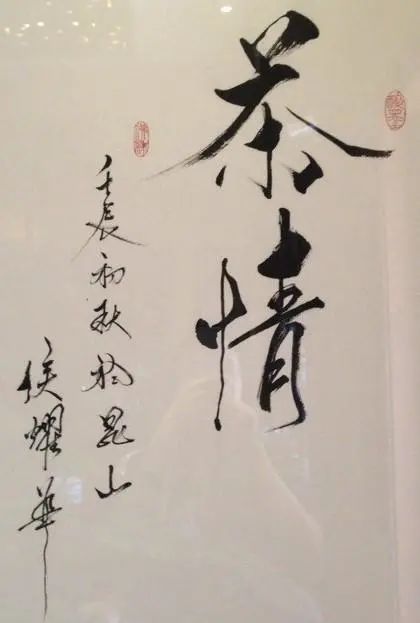 茶情
壬辰初秋於昆山
侯耀华